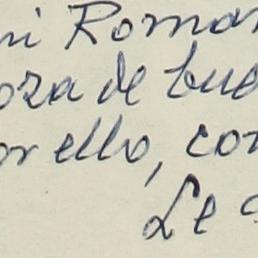 ni Roman
oza de bue
or ello, con
Le